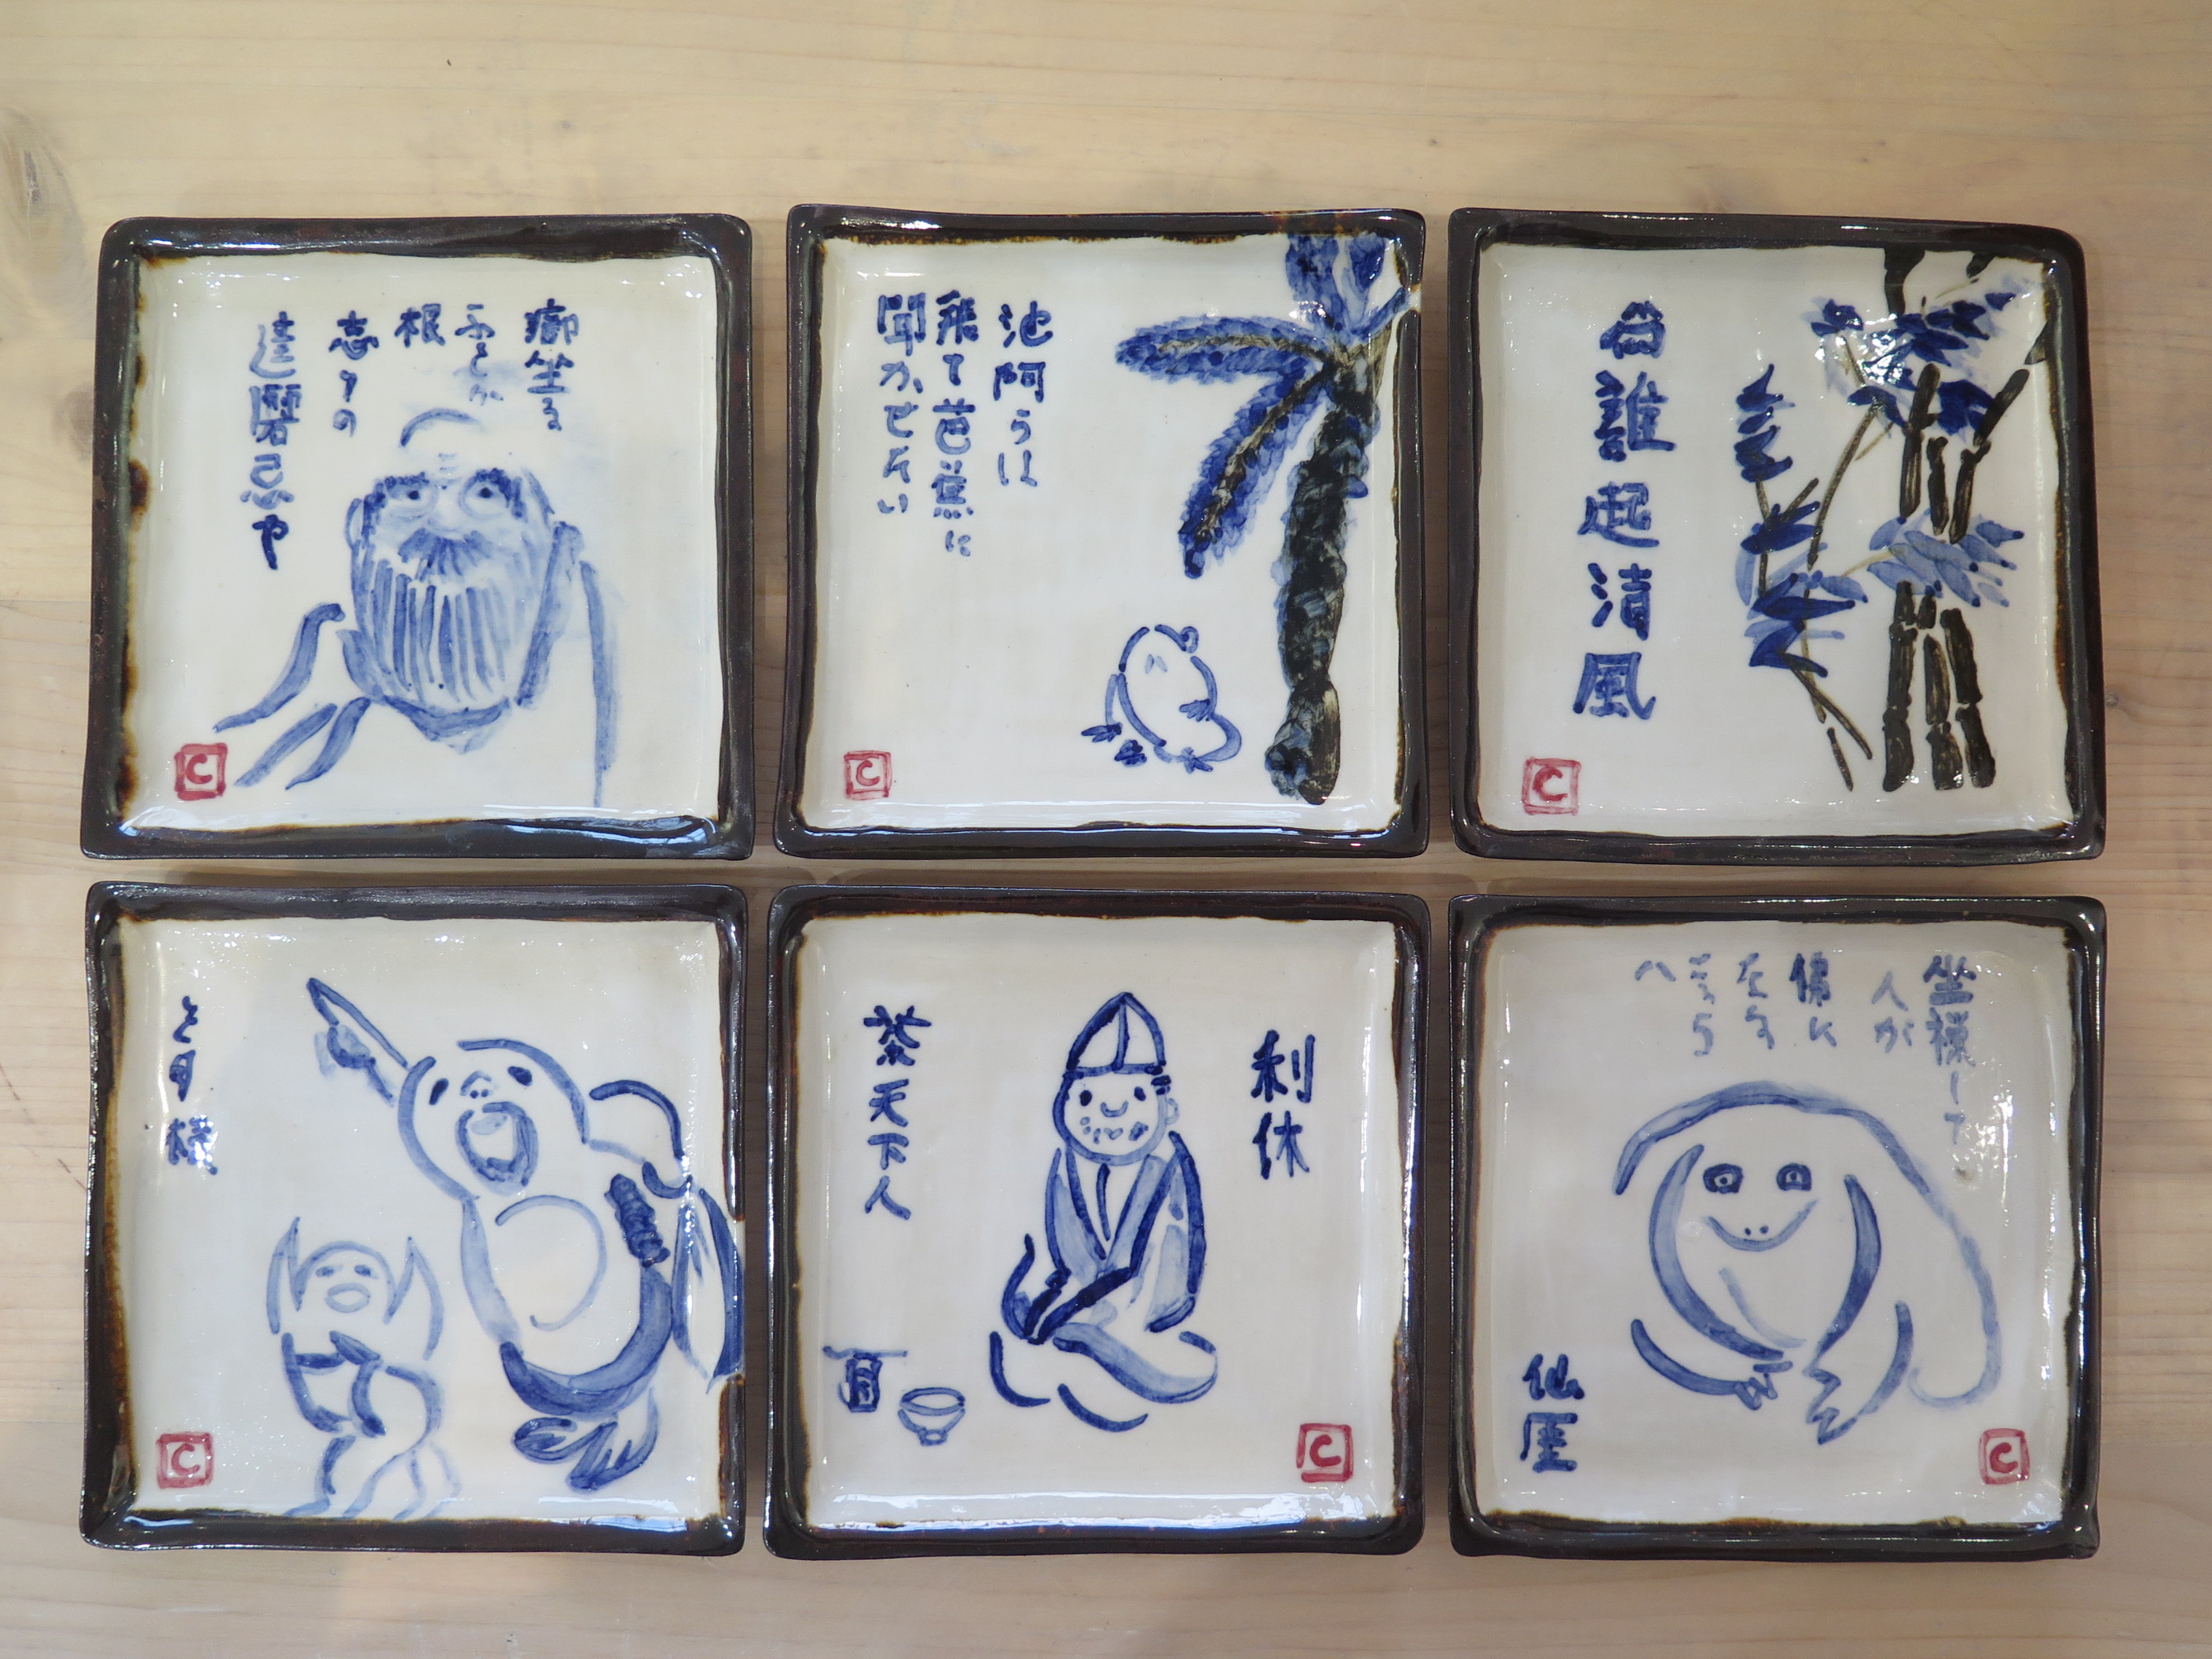 達磨忌や
志りの
根
ふとが
坐る
C
池阿らは
飛て芭蕉に
聞かせたい
C
為誰起清風
C
を月様
C
利休
茶天下人
C
坐禅して
人が
佛に
なる
なら
ハ
仙厓
C